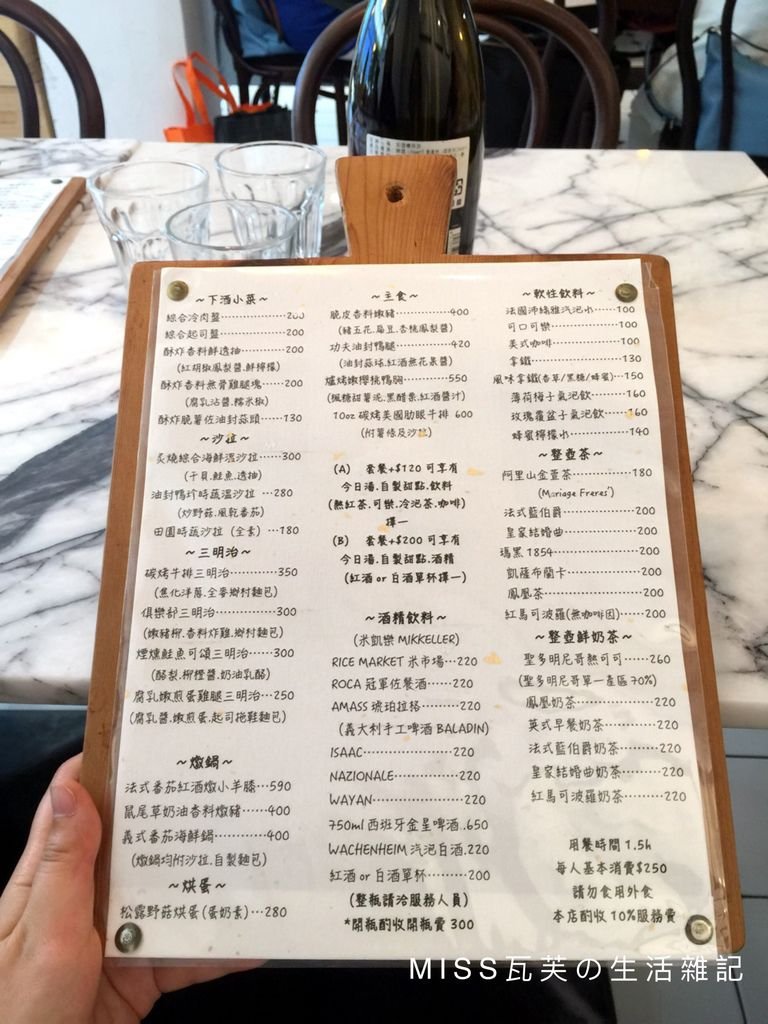 ~下酒小菜~
綜合冷肉盤 200
綜合起司盤 200
酥炸香料鮮透抽 200
(紅胡椒鳳梨醬.鮮檸檬)
酥炸香料無骨雞腿塊 200
(腐乳沾醬.糯米椒)
酥炸脆薯佐油封蒜頭 130
~沙拉~
炙燒綜合海鮮溫沙拉 300
(干貝.鮭魚.透抽)
油封鴨珍時蔬溫沙拉 280
(炒野菇.風乾番茄)
田園時蔬沙拉 (全素) 180
~三明治~
碳烤牛排三明治 350
(焦化洋蔥.全麥鄉村麵包)
俱樂部三明治 300
(嫩豬柳.香料炸雞.鄉村麵包)
煙燻鮭魚可頌三明治 300
(酪梨.柳橙醬.奶油乳酪)
腐乳嫩煎蛋雞腿三明治 250
(腐乳醬.嫩煎蛋.起司拖鞋麵包)
~燉鍋~
法式番茄紅酒燉小羊膝 590
鼠尾草奶油香料燉豬 400
義式番茄海鮮鍋 400
(燉鍋均附沙拉.自製麵包)
~烘蛋~
松露野菇烘蛋(蛋奶素) 280
~主食~
脆皮香料嫩豬 400
(豬五花.扁豆.杏桃鳳梨醬)
功夫油封鴨腿 420
(油封蒜球.紅酒無花果醬)
爐烤嫩櫻桃鴨胸 550
(楓糖甜薯泥.黑醋栗.紅酒醬汁)
10oz 碳烤美國肋眼牛排 600
(附薯條及沙拉)
(A) 套餐+$120 可享有
今日湯.自製甜點.飲料
(熱紅茶.可樂.冷泡茶.咖啡)
擇一
(B) 套餐+$200 可享有
今日湯.自製甜點.酒精
(紅酒 or 白酒單杯擇一)
酒精飲料~
(米凱樂 MIKKELLER)
RICE MARKET 米市場 220
ROCA 冠軍佐餐酒 220
AMASS 琥珀拉格 220
(義大利手工啤酒 BALADIN)
ISAAC 220
NAZIONALE 220
WAYAN 220
750ml 西班牙金星啤酒 650
WACHENHEIM 汽泡白酒 220
紅酒 or 白酒單杯 200
(整瓶請洽服務人員)
*開瓶酌收開瓶費 300
~軟性飲料~
法國沛綠雅汽泡水 100
可口可樂 100
美式咖啡 100
拿鐵 130
風味拿鐵(香草/黑糖/蜂蜜) 150
薄荷梅子氣泡飲 160
玫瑰覆盆子氣泡飲 160
蜂蜜檸檬水 140
~整壺茶~
阿里山金萱茶 180
(Mariage Freres')
法式藍伯爵 200
皇家結婚曲 200
瑪黑 1854 200
凱薩布蘭卡 200
鳳凰茶 200
紅馬可波羅(無咖啡因) 200
~整壺鮮奶茶~
聖多明尼哥熱可可 260
(聖多明尼哥單一產區 70%)
鳳凰奶茶 220
英式早餐奶茶 220
法式藍伯爵奶茶 220
皇家結婚曲奶茶 220
紅馬可波羅奶茶 220
用餐時間 1.5h
每人基本消費$250
請勿食用外食
本店酌收 10%服務費
MISS瓦芙の生活雜記